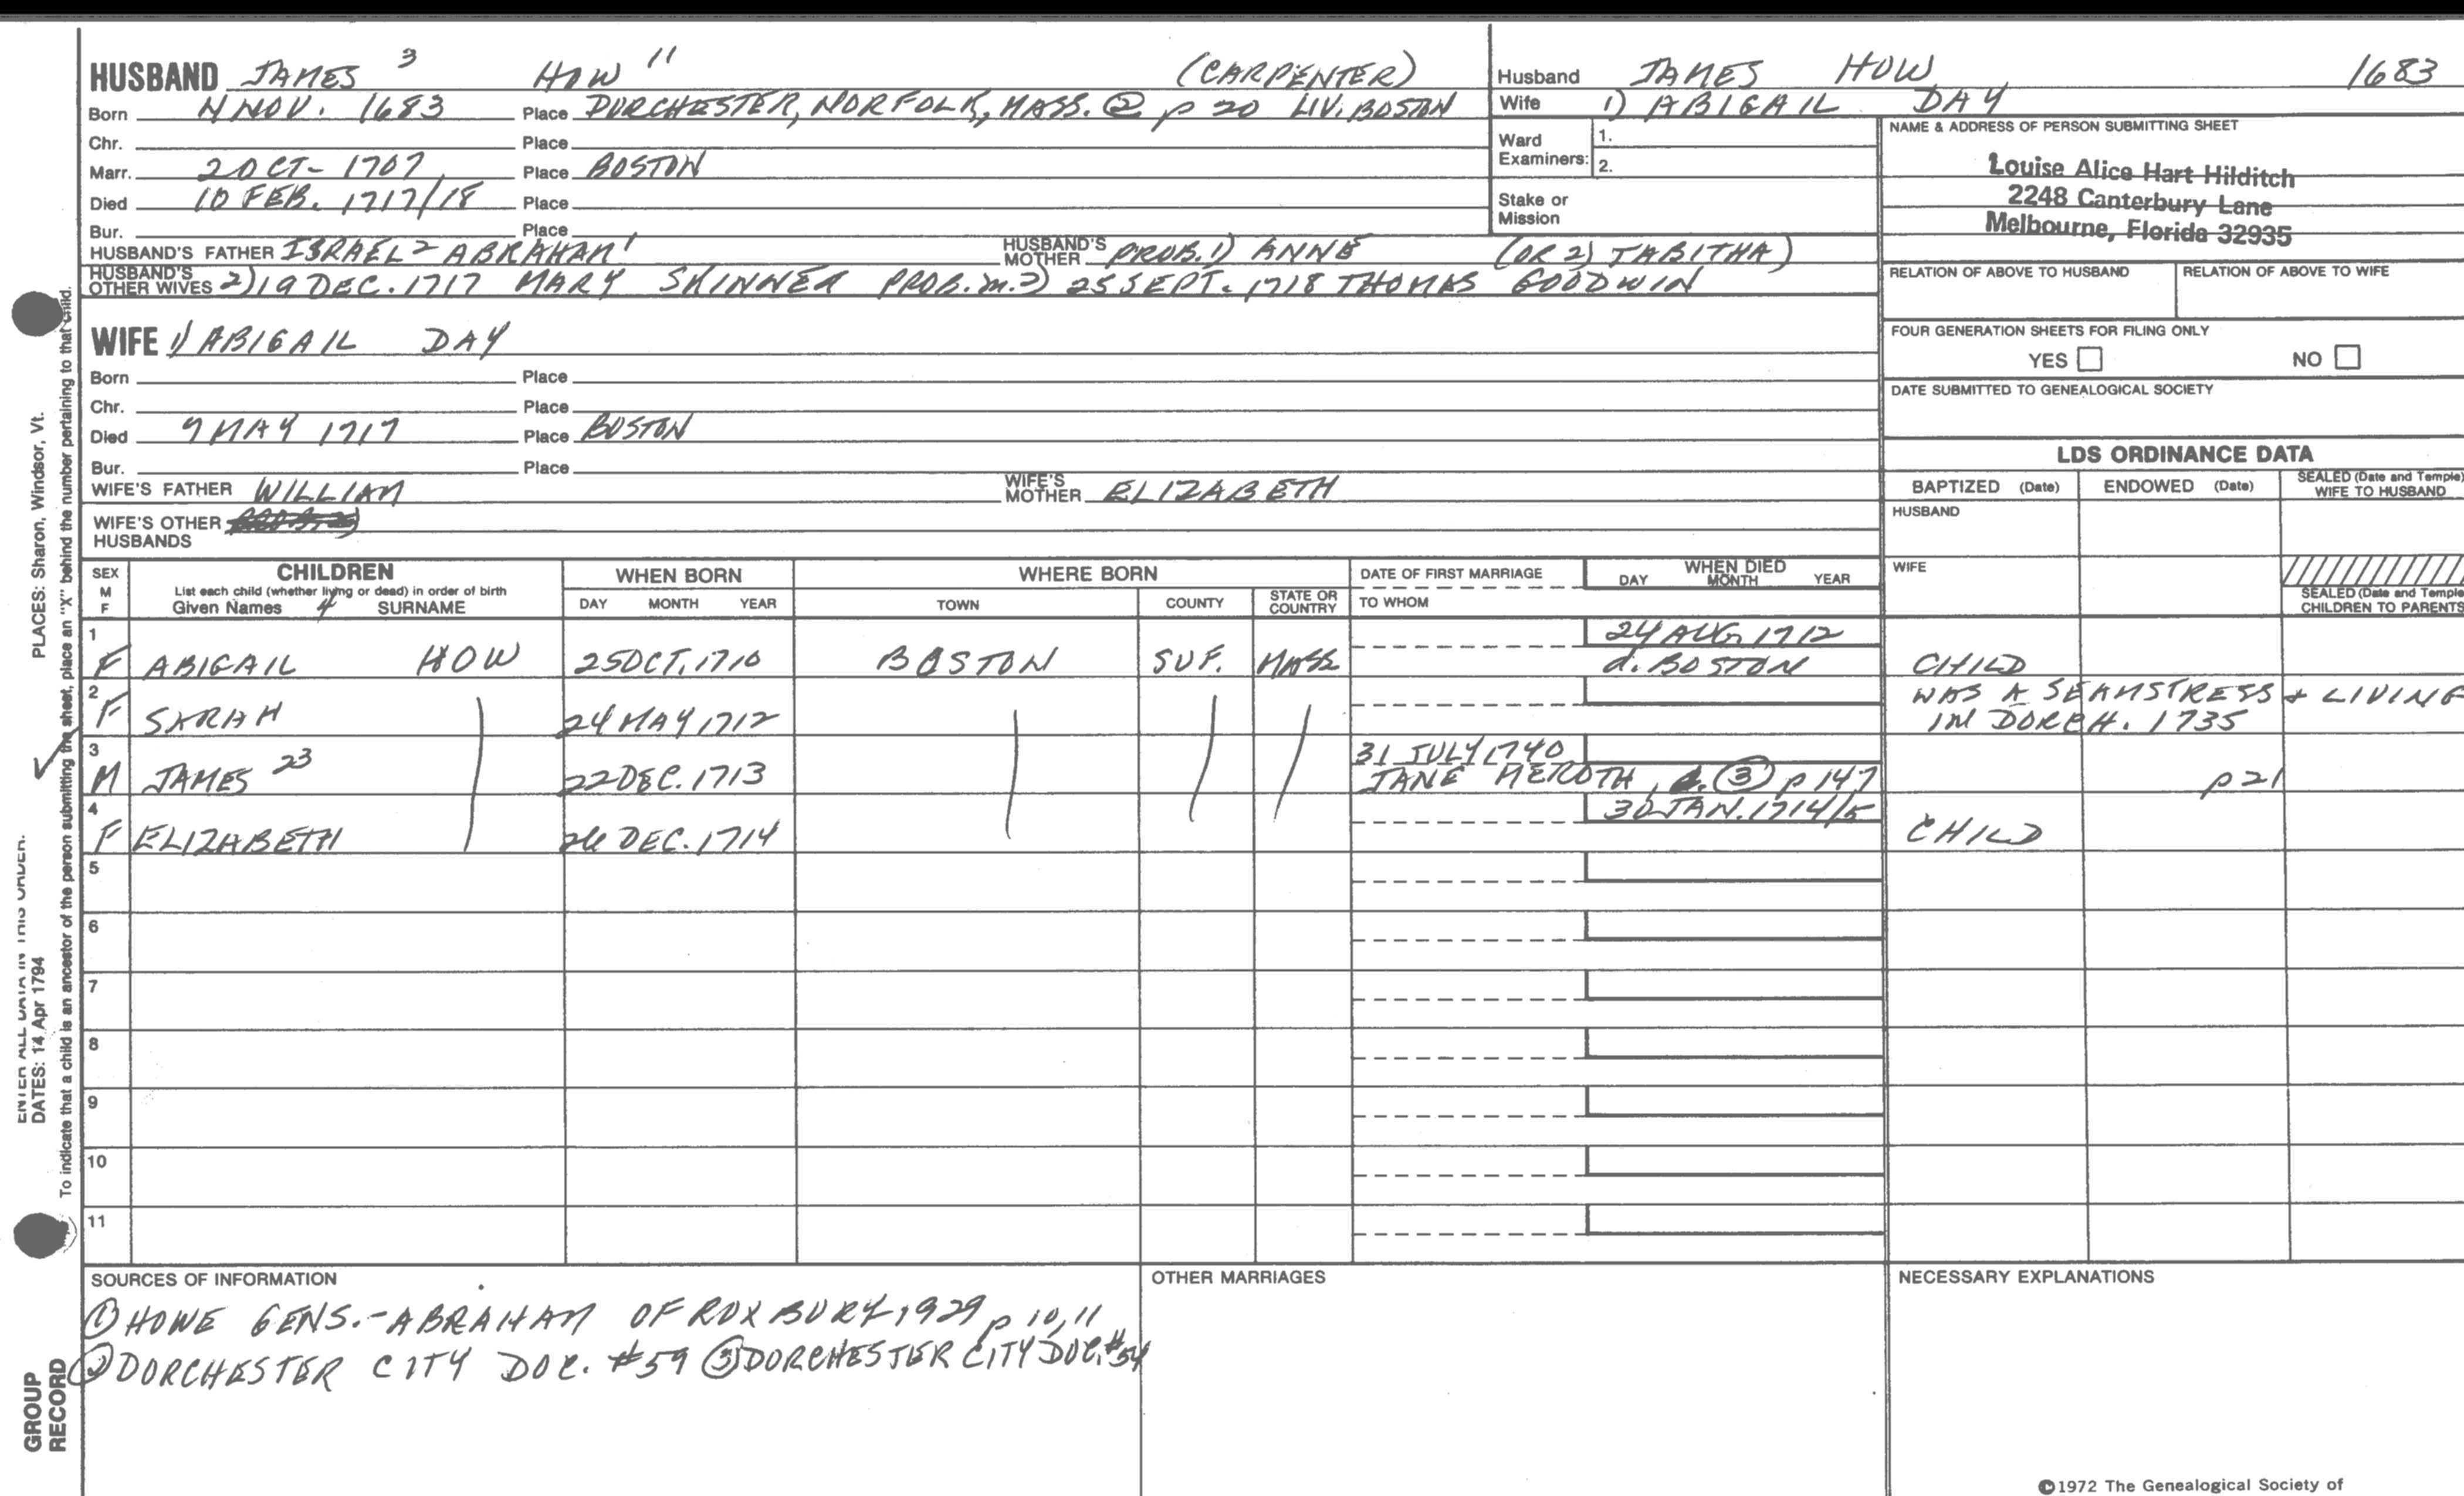 HUSBAND JAMES 3 HOW 11 (CARPENTER)
Born 4 NOV. 1683 Place DORCHESTER, NORFOLK, MASS. ② p 20 LIV. BOSTON
Chr. Place
Marr. 2 OCT - 1707 Place BOSTON
Died 10 FEB. 1717/18 Place
Bur. Place
HUSBAND'S FATHER ISRAEL 2 ABRAHAM 1 HUSBAND'S MOTHER PROB. 1) ANNE (OR 2) TABITHA)
HUSBAND'S OTHER WIVES 2) 19 DEC. 1717 MARY SKINNER PROB. m. 2) 25 SEPT. 1718 THOMAS GOODWIN
WIFE 1) ABIGAIL DAY
Born Place
Chr. Place
Died 9 MAY 1717 Place BOSTON
Bur. Place
WIFE'S FATHER WILLIAM WIFE'S MOTHER ELIZABETH
WIFE'S OTHER HUSBANDS
Husband JAMES HOW 1683
Wife 1) ABIGAIL DAY
Ward Examiners: 1.
2.
Stake or Mission
NAME & ADDRESS OF PERSON SUBMITTING SHEET
Louise Alice Hart Hilditch
2248 Canterbury Lane
Melbourne, Florida 32935
RELATION OF ABOVE TO HUSBAND RELATION OF ABOVE TO WIFE
FOUR GENERATION SHEETS FOR FILING ONLY
YES NO
DATE SUBMITTED TO GENEALOGICAL SOCIETY
LDS ORDINANCE DATA
BAPTIZED (Date) ENDOWED (Date) SEALED (Date and Temple) WIFE TO HUSBAND
HUSBAND
WIFE
SEALED (Date and Temple CHILDREN TO PARENTS
SEX M F CHILDREN WHEN BORN WHERE BORN DATE OF FIRST MARRIAGE WHEN DIED
List each child (whether living or dead) in order of birth
Given Names 4 SURNAME DAY MONTH YEAR TOWN COUNTY STATE OR COUNTRY TO WHOM DAY MONTH YEAR
1 24 AUG 1712
F ABIGAIL HOW 25 OCT. 1710 BOSTON SUF. MASS d. BOSTON CHILD
2 WAS A SEAMSTRESS & LIVING
F SARAH 24 MAY 1712 IN DORCH. 1735
3 31 JULY 1740
M JAMES 23 22 DEC. 1713 JANE MEROTH, ③ p 147 p 21
4 30 JAN. 1714/5
F ELIZABETH 26 DEC. 1714 CHILD
5
6
7
8
9
10
11
SOURCES OF INFORMATION
① HOWE GENS. - ABRAHAM OF ROXBURY, 1929 p 10, 11
② DORCHESTER CITY DOC. #59 ③ DORCHESTER CITY DOC. #54
OTHER MARRIAGES
NECESSARY EXPLANATIONS
©1972 The Genealogical Society of
PLACES: Sharon, Windsor, Vt.
ENTER ALL DATA IN THIS ORDER.
DATES: 14 Apr 1794
To indicate that a child is an ancestor of the person submitting the sheet, place an "X" behind the number pertaining to that child.
GROUP
RECORD